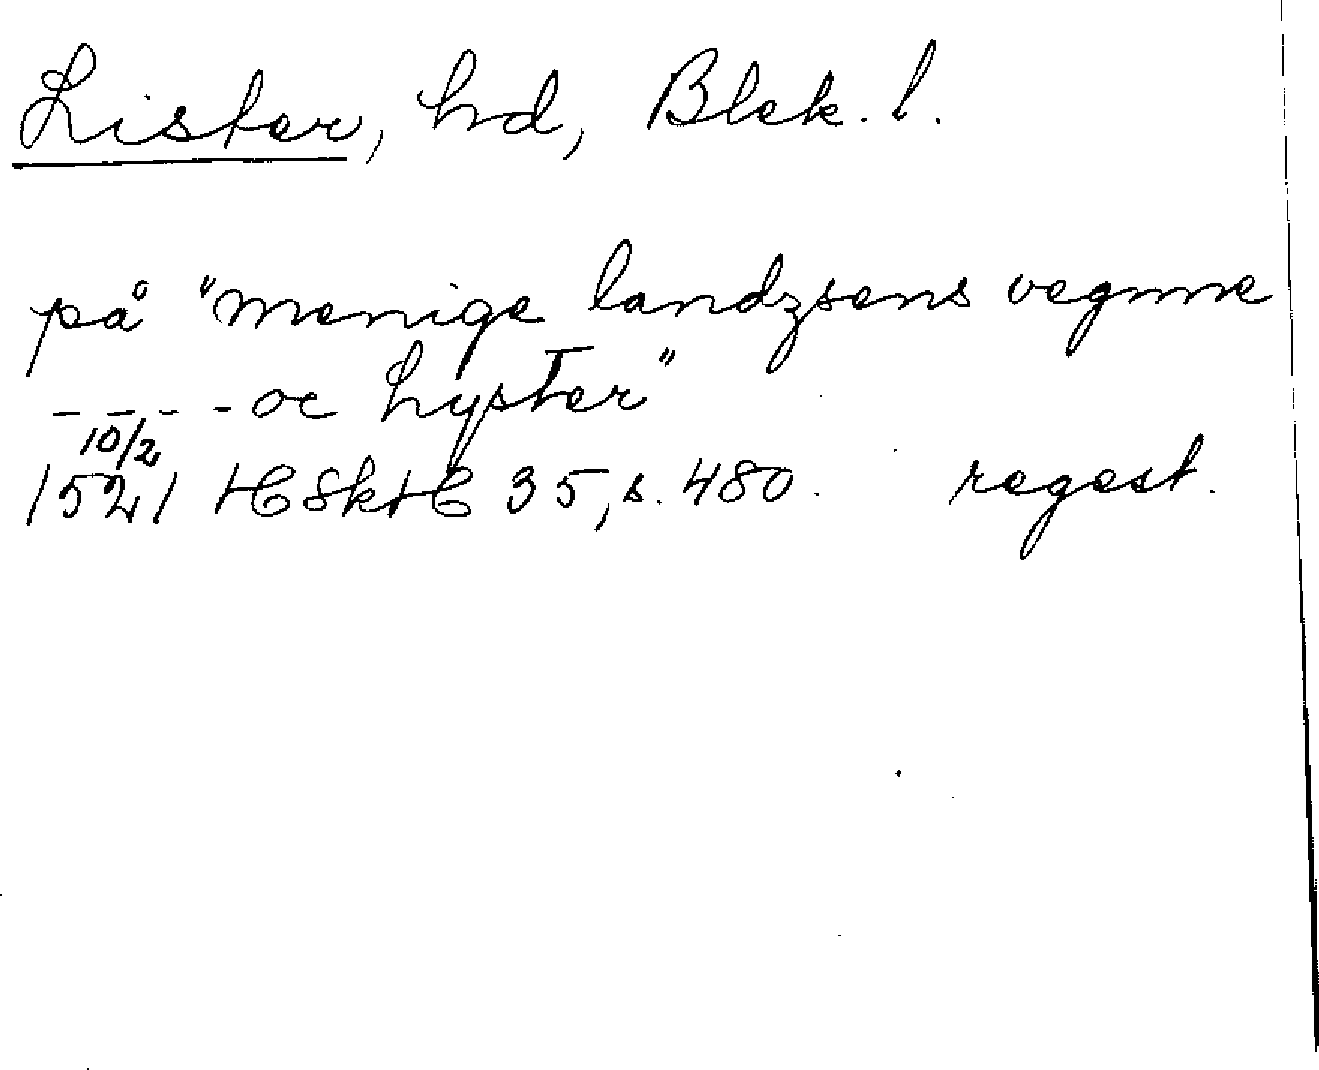 Lister, hd, Blek. l.
på "menige landzsens vegnne
- - - - oc Lyster"
10/2
1521 HSkH 35, s. 480. regest.